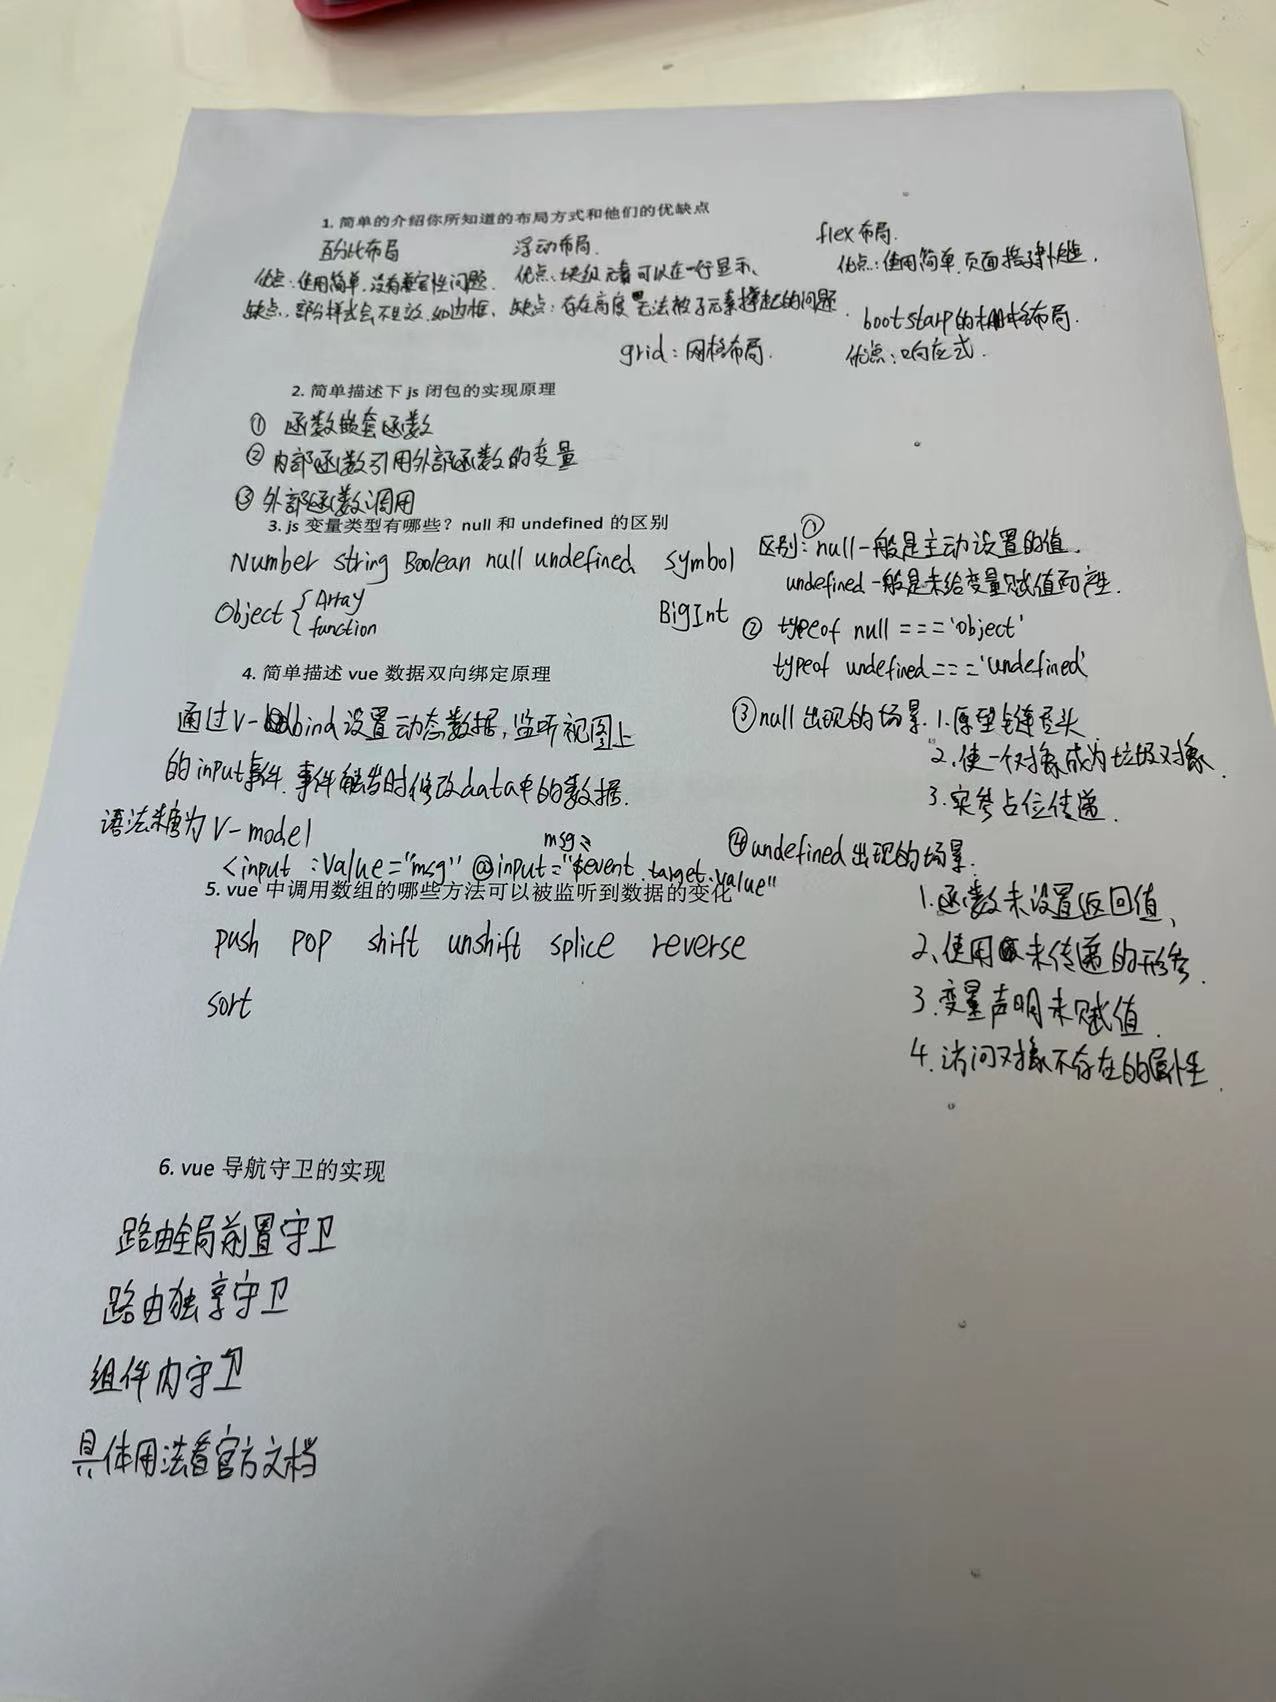 1. 简单的介绍你所知道的布局方式和他们的优缺点
百分比布局
优点：使用简单，没有兼容性问题．
缺点．部分样式会不生效．如边框．
浮动布局．
优点：块级元素可以在一行显示、
缺点：存在高度无法被子元素撑起的问题．
flex布局．
优点：使用简单．页面搭建快捷．
bootstarp的栅格布局．
优点：响应式．
grid：网格布局．
2. 简单描述下 js 闭包的实现原理
① 函数嵌套函数
② 内部函数引用外部函数的变量
③ 外部函数调用
3. js 变量类型有哪些？null 和 undefined 的区别
Number string Boolean null undefined symbol
Object { Array
function
BigInt
区别：① null一般是主动设置的值．
undefined 一般是未给变量赋值而产生．
② typeof null === 'object'
typeof undefined === 'undefined'
③ null 出现的场景．1.原型链尽头
2、使一个对象成为垃圾对象．
3. 实参占位传递．
④ undefined 出现的场景．
1.函数未设置返回值、
2、使用未传递的形参．
3.变量声明未赋值．
4.访问对象不存在的属性．
4. 简单描述 vue 数据双向绑定原理
通过V-bind设置动态数据，监听视图上
的input事件．事件触发时修改data中的数据．
语法糖为 V-model
msg=
<input :Value="msg" @input="$event.target.value"
5. vue 中调用数组的哪些方法可以被监听到数据的变化
push pop shift unshift splice reverse
sort
6. vue 导航守卫的实现
路由全局前置守卫
路由独享守卫
组件内守卫
具体用法看官方文档